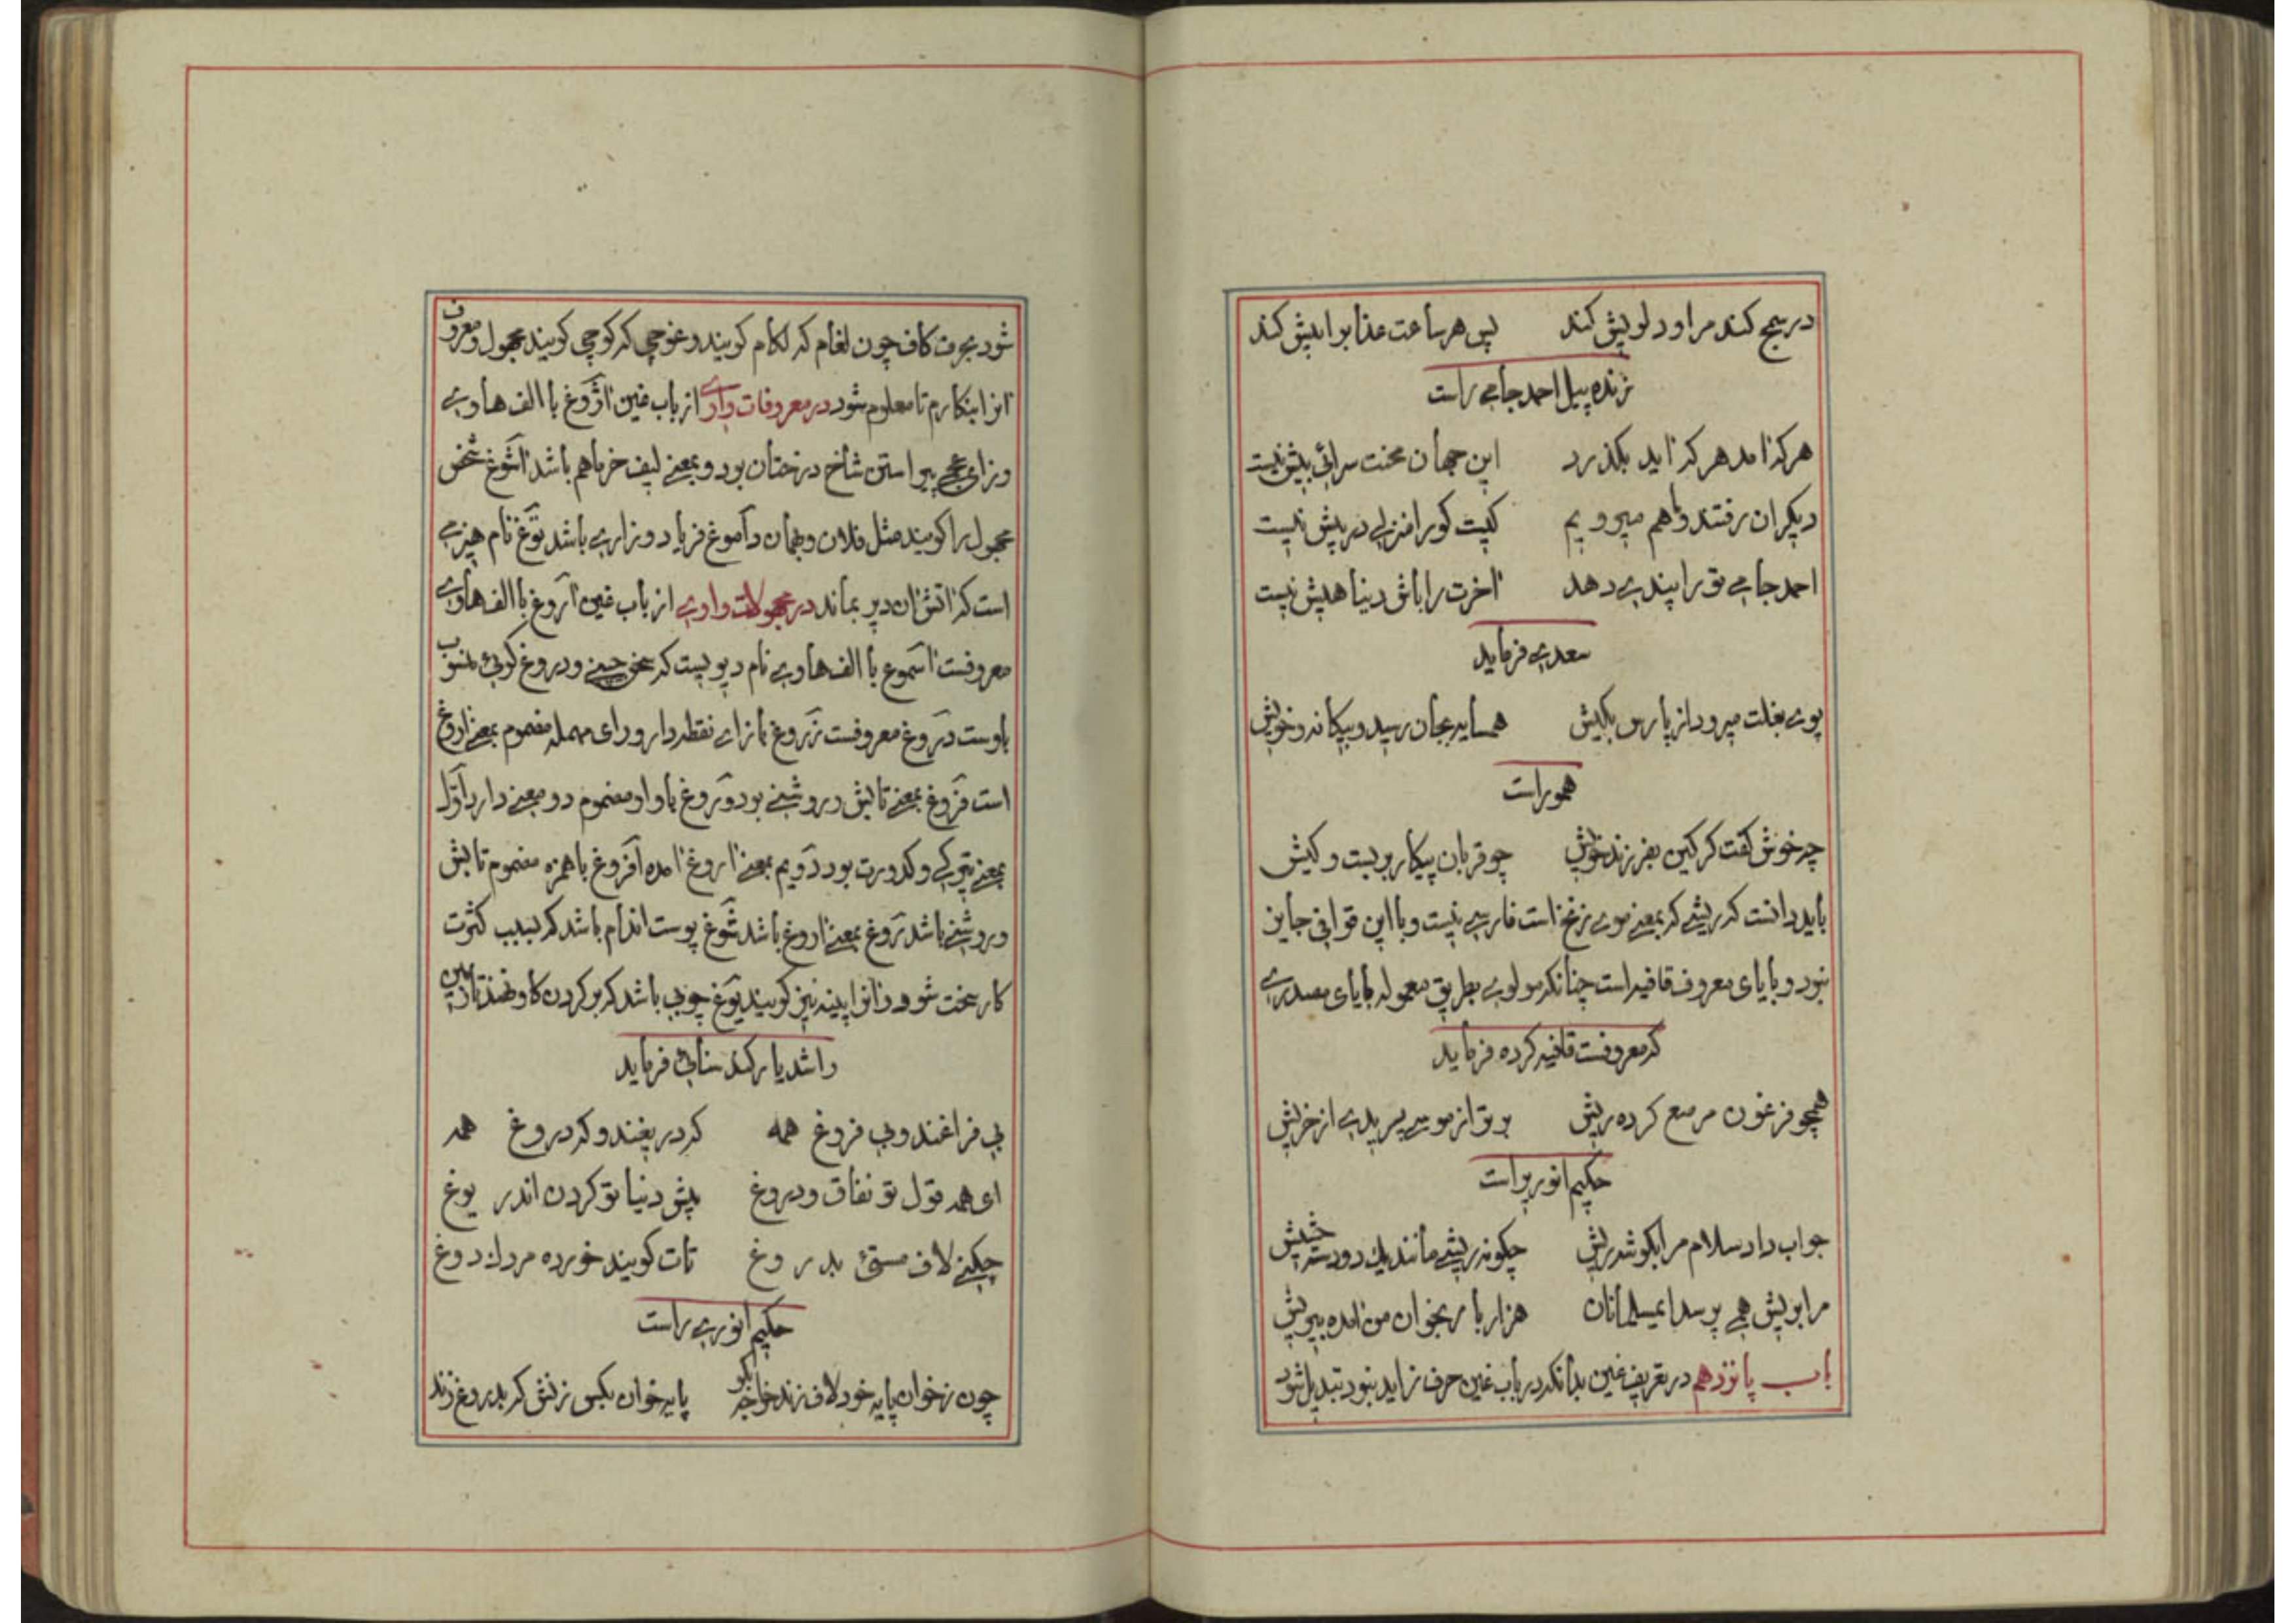 در رنج کند مرا و دلویش کند پس هر ساعت عذابرا بیش کند
ژنده پیل احمد جامی راست
هر که آمد هر که آید بگذرد این جهان محنت سرائی بیش نیست
دیگران رفتند و ما هم میرویم کیست کو را منزلی در پیش نیست
احمد جامی تو را پند می دهد آخرت را باش دنیا هیش نیست
سعدی فرماید
بوی بغلت میرود از پارس بکیش همسایه بجان رسید و بیگانه و خویش
همو راست
چه خوش گفت گرگین بفرزند خویش چو قربان پیکار بربست و کیش
باید دانست که ریشی که بمعنی موی زنخ است فارسی نیست و با این قوافی جایز
نبود و بایای معروف قافیه است چنانکه مولوی بطریق معموله بایای مصدری
که معروفست قافیه کرده فرماید
همچو فرعون مرصع کرده ریش برتر از موسی پریده از خریش
حکیم انوریراست
جواب داد سلام مرا بگوشه ریش چگونه ریشی مانند یک دو دسته حشیش
مرا بریش همی پرسد ای مسلمانان هزار بار بخوان من آمده بپریش
باب پانزدهم در تعریف غین بدانکه در باب غین حرف زاید نبود تبدیل شود
شود بحرف کاف چون لغام که لکام کویند و غوچی که کوچی کویند مجهول و معروف
از اینکارم تا معلوم شود در معروفات واوی از باب غین آژوغ با الف هاوی
و زای عجمی پیراستن شاخ درختان بود و بمعنی لیف خرما هم باشد آشوغ شخص
مجهول را کویند مثل فلان و بهمان دآموغ فریاد و زاری باشد توغ نام هیزمی
است که آتش آن دیر بماند در مجهولات واوی از باب غین آروغ با الف هاوی
معروفست آسموغ با الف هاوی نام دیویست که سخن چینی و دروغ گوئی منسوب
باوست دروغ معروفست زروغ با زای نقطه دار و رای مهمله مضموم بمعنی آروغ
است فروغ بمعنی تابش و روشنی بود وروغ با واو مضموم دو معنی دارد اول
بمعنی تیرگی و کدورت بود دویم بمعنی آروغ آمده افروغ با همزه مضموم تابش
و روشنی باشد رروغ بمعنی آروغ باشد شوغ پوست اندام باشد که بسبب کثرت
کار سخت شود و آنرا پینه نیز کویند یوغ چوبی باشد که بر گردن کاو نهند تا زمین
را شدیار کند سنائی فرماید
بی فراغند و بی فروغ همه که دریغند و که دروغ همه
ای همه قول تو نفاق و دروغ پیش دنیا تو گردن اندر یوغ
چکنی لاف مستی بدروغ تات کویند خورده مردک دوغ
حکیم انوری راست
چون زخوان پایه خود لاف زند خواجه بگو پایه خوان بکس زنش که بدروغ زند